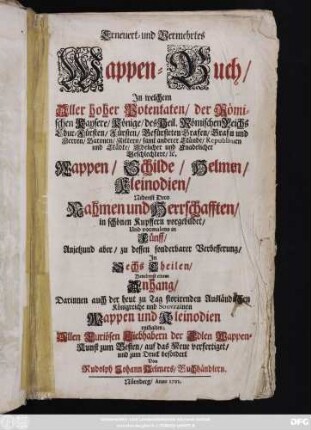 Erneuert- und Vermehrtes
Wappen-Buch/
In welchem
Aller hoher Potentaten/ der Römi-
schen Kaysere/ Könige/ des Heil. Römischen Reichs
Chur-Fürsten/ Fürsten/ Gefürsteten Grafen/ Grafen und
Herren/ Baronen/ Rittere/ samt anderer Stände/ Republiquen
und Städte/ Adelicher und
Geschlechter/ ꝛc.
Wappen/ Schilde/ Helmen/
Kleinodien/
Nebenst Dero
Nahmen und Herrschafften/
in schönen Kupffern vorgebildet/
Und vormalens in
Fünff/
Anjetzund aber/ zu dessen sonderbarer Verbesserung/
In
Sechs Theilen/
Benebenst einem
Anhang/
Darinnen auch der heut zu Tag florirenden Ausländischen
Königreiche und Souverainen
Wappen und Kleinodien
enthalten;
Allen Curiösen Liebhabern der Edlen Wappen-
Kunst zum Besten/ auf das Neue verfertiget/
und zum Druck befördert
Von
Rudolph Johann Helmers/ Buchhändlern.
Nürnberg/ Anno
DFG